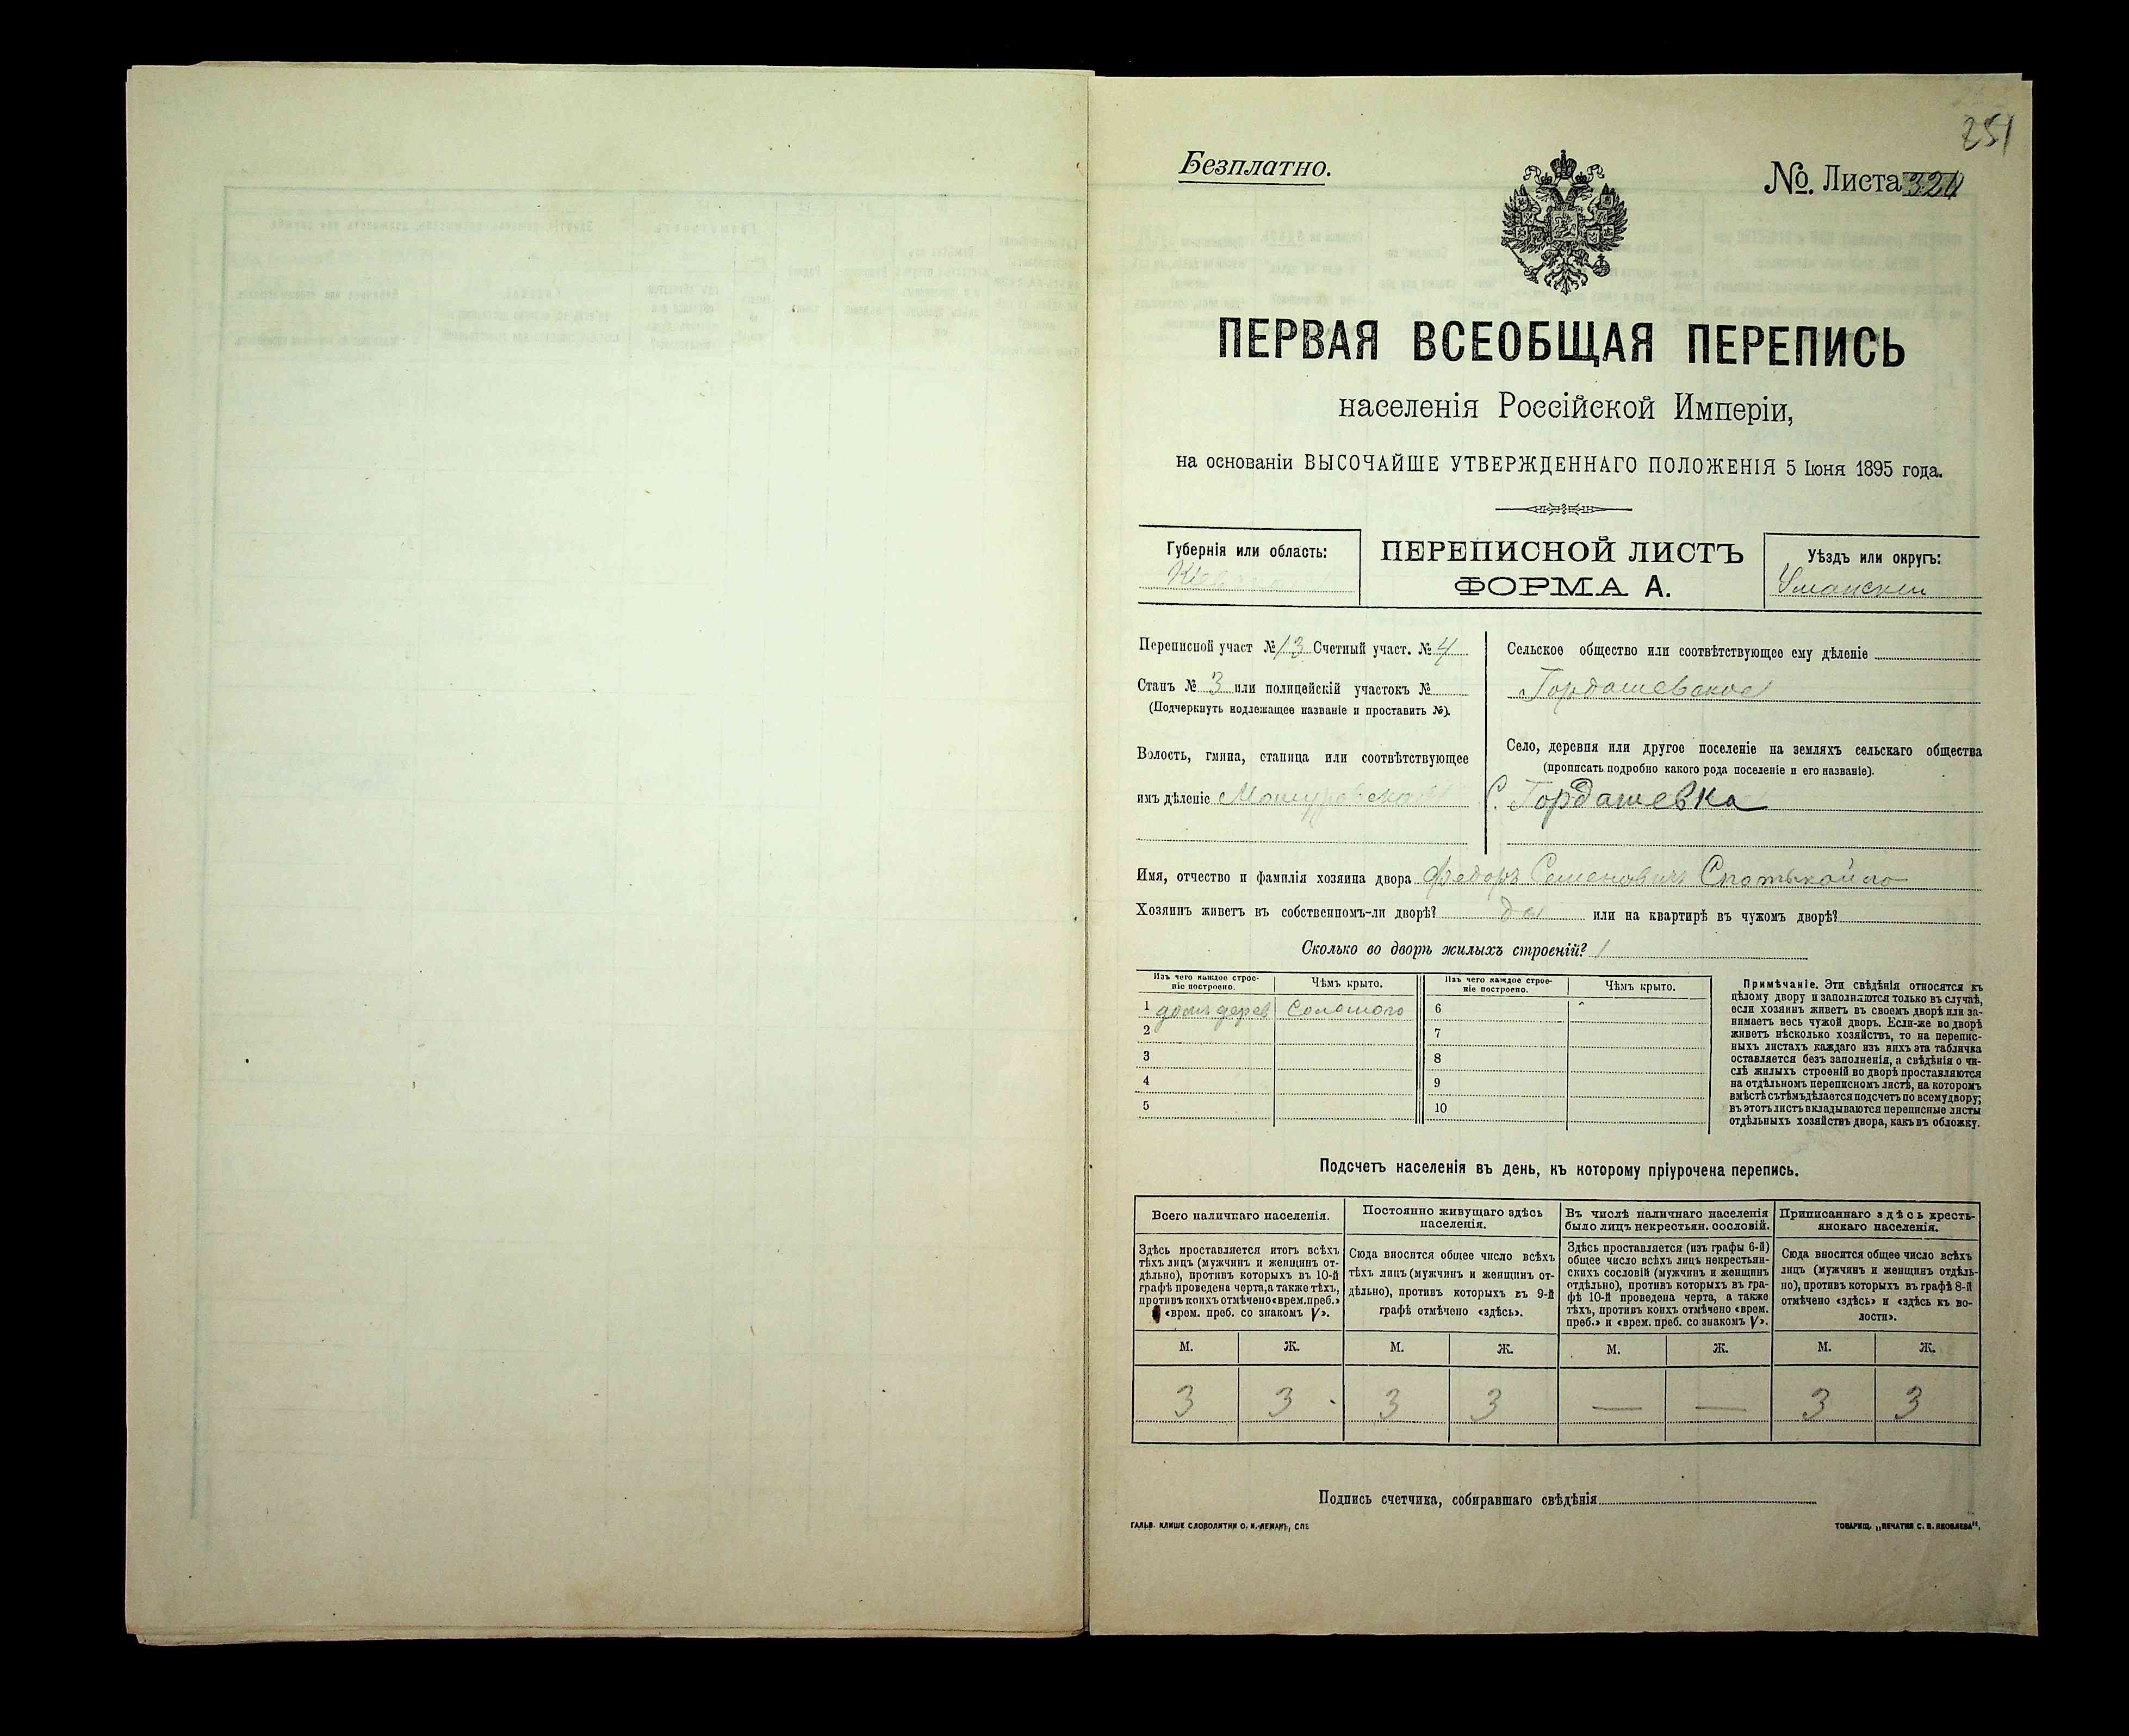 251
Безплатно.
№. Листа 321
ПЕРВАЯ ВСЕОБЩАЯ ПЕРЕПИСЬ
населенія Россійской Имперіи,
на основаніи ВЫСОЧАЙШЕ УТВЕРЖДЕННАГО ПОЛОЖЕНІЯ 5 Іюня 1895 года.
Губернія или область:
Кіевская
ПЕРЕПИСНОЙ ЛИСТЪ
ФОРМА А.
Уѣздъ или округъ:
Уманскій
Переписной участ № 13 Счетный участ. № 4
Станъ № 3 или полицейскій участокъ №
(Подчеркнуть подлежащее названіе и проставить №).
Волость, гмина, станица или соотвѣтствующее
имъ дѣленіе
Сельское общество или соотвѣтствующее ему дѣленіе
Гордашевское
Село, деревня или другое поселеніе на земляхъ сельскаго общества
(прописать подробно какого рода поселеніе и его названіе).
С. Гордашевка
Имя, отчество и фамилія хозяина двора Федоръ Семеновичъ
Хозяинъ живетъ въ собственномъ-ли дворѣ? да или на квартирѣ въ чужомъ дворѣ?
Сколько во дворѣ жилыхъ строеній? 1
Изъ чего каждое строе-
ніе построено.
Чѣмъ крыто.
1 домъ дерев Соломою
2
3
4
5
Изъ чего каждое строе-
ніе построено.
Чѣмъ крыто.
6
7
8
9
10
Примѣчаніе. Эти свѣдѣнія относятся къ
цѣлому двору и заполняются только въ случаѣ,
если хозяинъ живетъ въ своемъ дворѣ или за-
нимаетъ весь чужой дворъ. Если-же во дворѣ
живетъ нѣсколько хозяйствъ, то на перепис-
ныхъ листахъ каждаго изъ нихъ эта табличка
оставляется безъ заполненія, а свѣдѣнія о чи-
слѣ жилыхъ строеній во дворѣ проставляются
на отдѣльномъ переписномъ листѣ, на которомъ
вмѣстѣ съ тѣмъ дѣлается подсчетъ по всему двору;
въ этотъ листъ вкладываются переписные листы
отдѣльныхъ хозяйствъ двора, какъ въ обложку.
Подсчетъ населенія въ день, къ которому пріурочена перепись.
Всего наличнаго населенія.
Здѣсь проставляется итогъ всѣхъ
тѣхъ лицъ (мужчинъ и женщинъ от-
дѣльно), противъ которыхъ въ 10-й
графѣ проведена черта, а также тѣхъ,
противъ коихъ отмѣчено «врем. преб.»
и «врем. преб. со знакомъ V».
Постоянно живущаго здѣсь
населенія.
Сюда вносится общее число всѣхъ
тѣхъ лицъ (мужчинъ и женщинъ от-
дѣльно), противъ которыхъ въ 9-й
графѣ отмѣчено «здѣсь».
Въ числѣ наличнаго населенія
было лицъ некрестьян. сословій.
Здѣсь проставляется (изъ графы 6-й)
общее число всѣхъ лицъ некрестьян-
скихъ сословій (мужчинъ и женщинъ
отдѣльно), противъ которыхъ въ гра-
фѣ 10-й проведена черта, а также
тѣхъ, противъ коихъ отмѣчено «врем.
преб.» и «врем. преб. со знакомъ V».
Приписаннаго здѣсь кресть-
янскаго населенія.
Сюда вносится общее число всѣхъ
лицъ (мужчинъ и женщинъ отдѣль-
но), противъ которыхъ въ графѣ 8-й
отмѣчено «здѣсь» и «здѣсь къ во-
лости».
М. Ж. М. Ж. М. Ж. М. Ж.
3 3 3 3 — — 3 3
Подпись счетчика, собиравшаго свѣдѣнія
ГАЛЬВ. КЛИШЕ СЛОВОЛИТНИ О. И. ЛЕМАНЪ, СПБ
ТОВАРИЩ. „ПЕЧАТНЯ С. П. ЯКОВЛЕВА“.